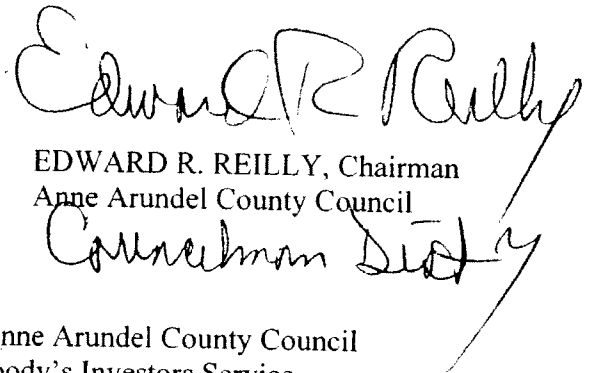 Edward R Reilly
EDWARD R. REILLY, Chairman
Anne Arundel County Council
Councilman Dist 7
nne Arundel County Council
oody's Investors Service